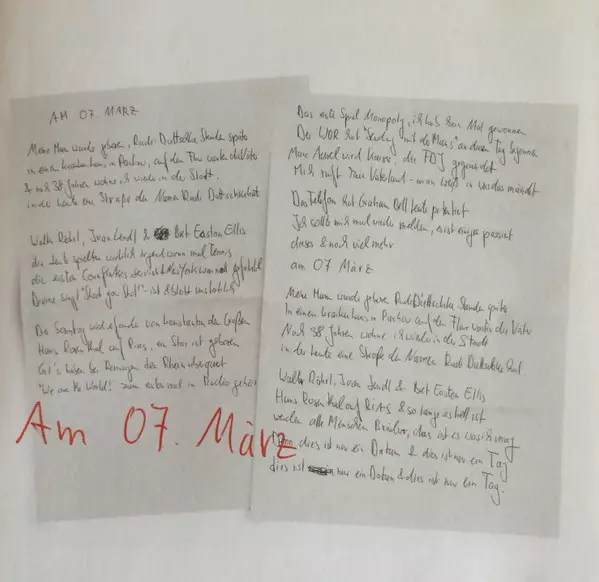 AM 07. MÄRZ
Meine Mam wurde geboren, Rudi Dutschke Stunden später
in einem Krankenhaus in Pankow, auf dem Flur wartet die Väter
& nach 38 Jahren wohne ich wieder in der Stadt
in der heute ein Straße den Namen Rudi Dutschke hat
Walter Röhrl, Ivan Lendl & Bret Easton Ellis
die Leute spielten wirklich irgendwann mal Tennis
die ersten Cornflakes serviert & New York war noch
Divine singt "Shoot your Shot" - ist & bleibt unsterblich
Der Sonntag wird erfunden von Konstantin dem Großen
Hans Rosenthal auf Rias, ein Star ist geboren
Cat's
"We are the World" zum ersten mal im Radio gehört
Das erste Spiel Monopoly, ich hab kein Mal gewonnen
Der WDR hat "Sendung mit der Maus" an diesem Tag begonnen
Meine wird, die FDJ gegründet
Mich ruft mein Vaterland - man wo das mündet
Das Telefon hat Graham Bell heute präsentiert
Ich sollte mich mal wieder melden, es ist einiges passiert
dieses & noch viel mehr
am 07 März
Meine Mam wurde geboren Rudi Dutschke Stunden später
In einem Krankenhaus in Pankow auf dem Flur warten die Väter
Nach 38 Jahren wohne ich wieder in der Stadt
in der heute eine Straße den Namen Rudi Dutschke hat.
Walter Röhrl, Ivan Lendl & Bret Easton Ellis
Hans Rosenthal auf RIAS & so lange es hell ist
werden alle Menschen Brüder, das ist es was ich mag
Denn dies ist nur ein Datum & dies ist nur ein Tag
dies ist nur ein Datum & dies ist nur ein Tag.
Am 07. März